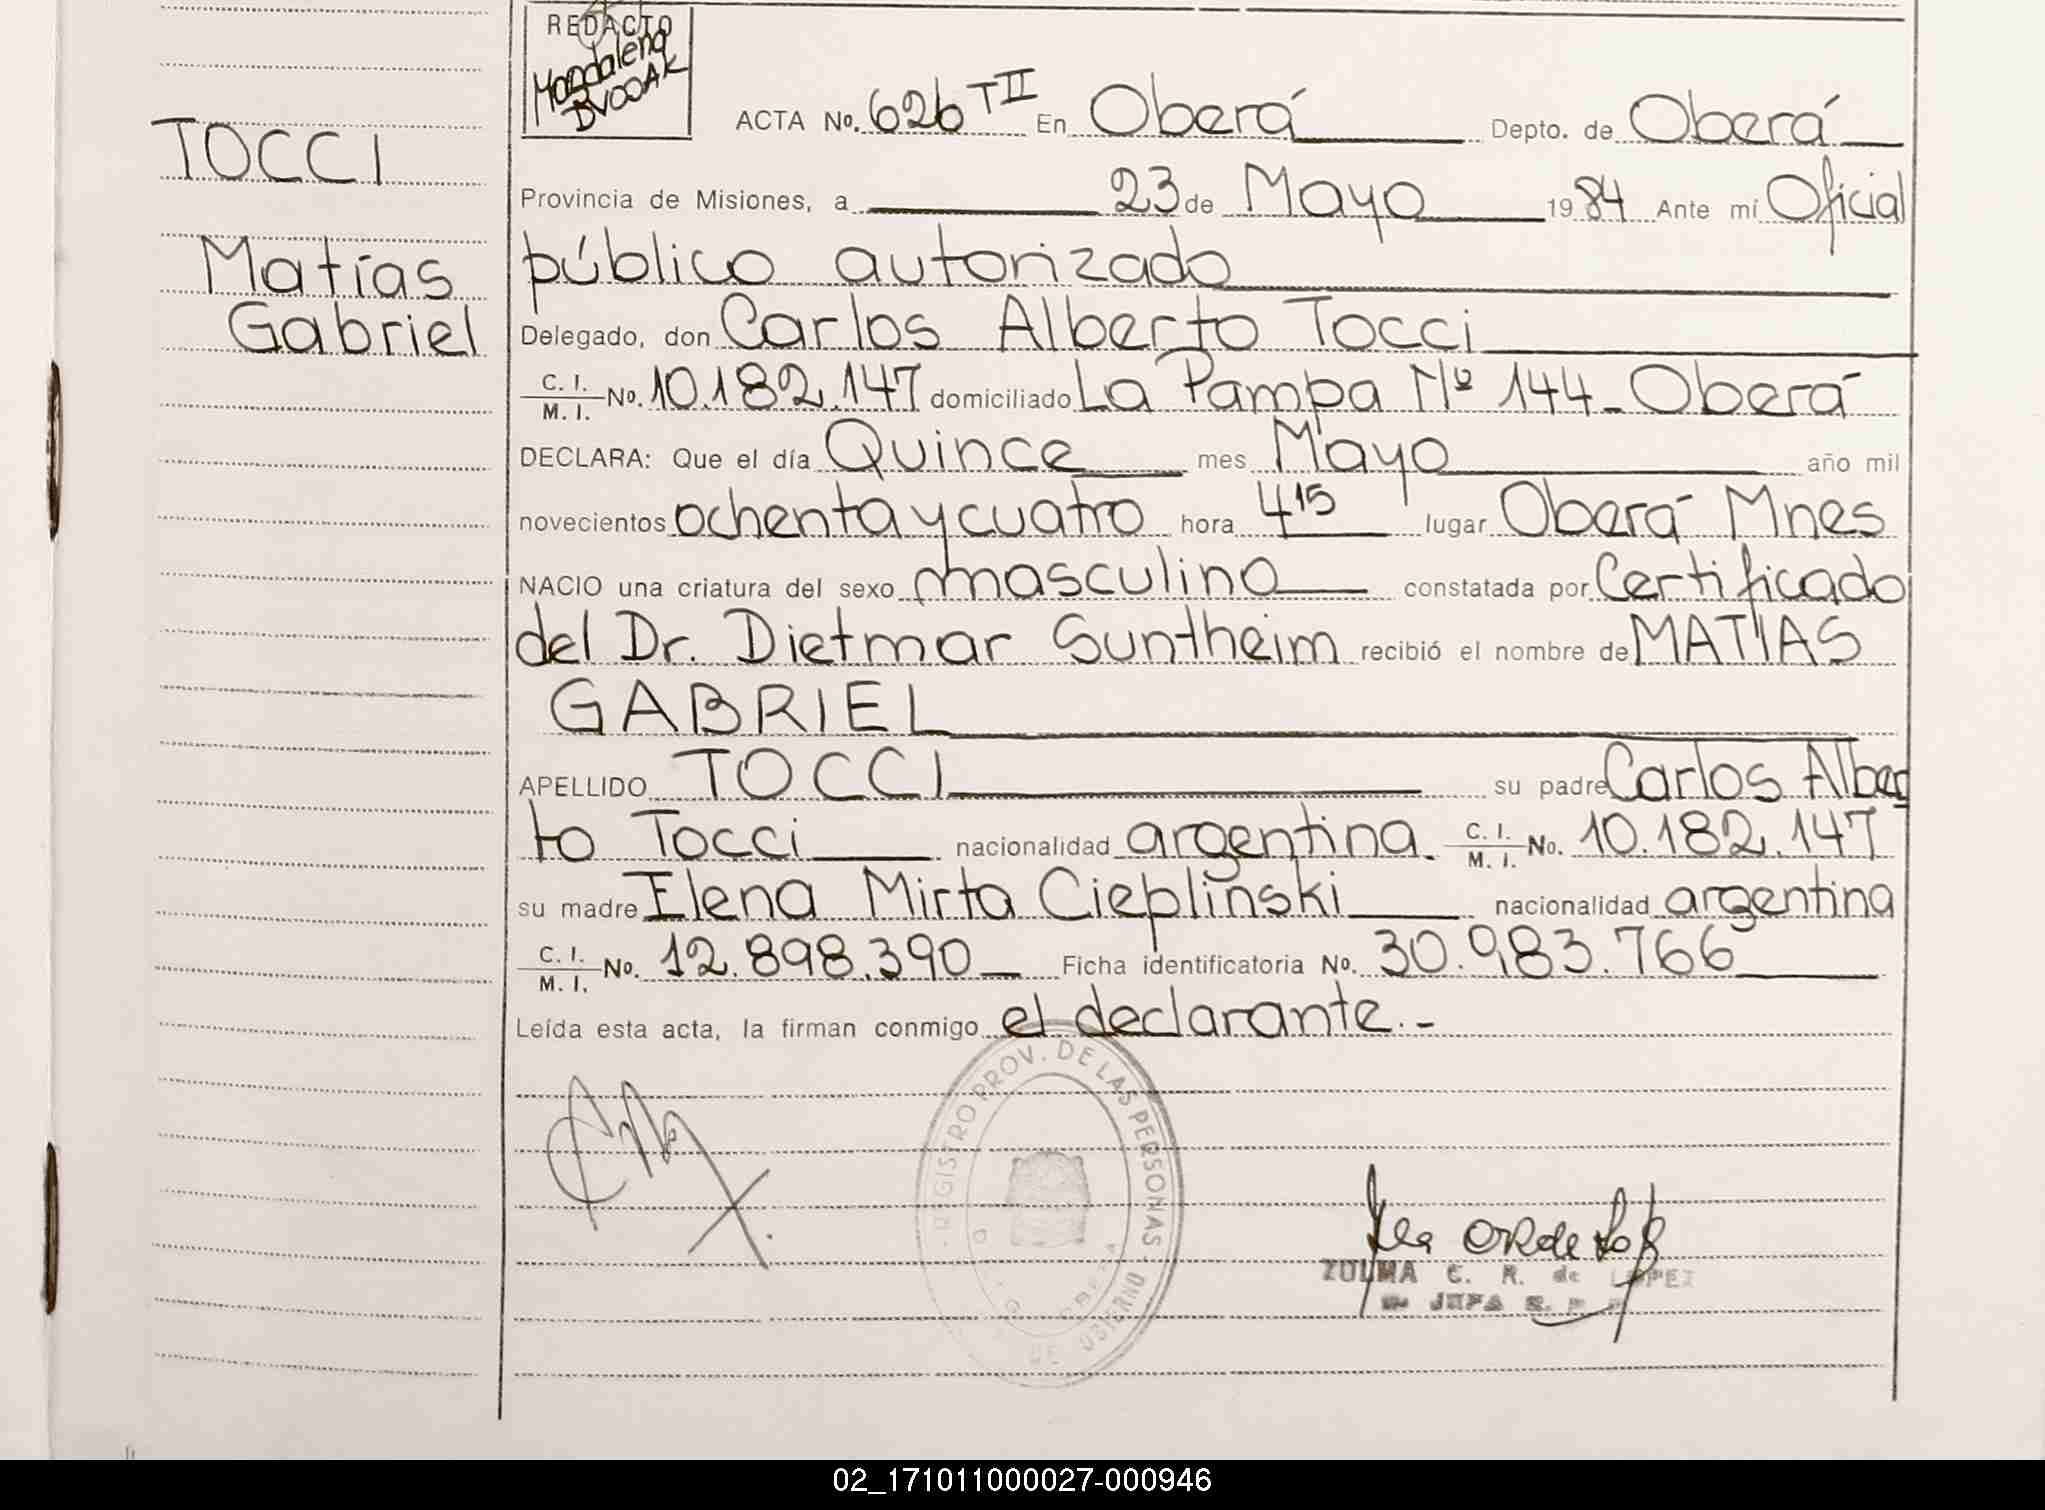 REDACTO
TOCCI
Matías
Gabriel
ACTA No. 626 TII En Oberá Depto. de Oberá
Provincia de Misiones, a 23 de Mayo 1984 Ante mí Oficial
público autorizado
Delegado, don Carlos Alberto Tocci
C. I. / M. I. No. 10.182.147 domiciliado La Pampa Nº 144 - Oberá
DECLARA: Que el día Quince mes Mayo año mil
novecientos ochenta y cuatro hora 4 15 lugar Oberá Mnes
NACIO una criatura del sexo masculino constatada por Certificado
del Dr. Dietmar Suntheim recibió el nombre de MATIAS
GABRIEL
APELLIDO TOCCI su padre Carlos Alber
to Tocci nacionalidad argentina. C. I. / M. I. No. 10.182.147
su madre Elena Mirta Cieplinski nacionalidad argentina
C. I. / M. I. No. 12.898.390 Ficha identificatoria No. 30.983.766
Leída esta acta, la firman conmigo el declarante.-
REGISTRO PROV. DE LAS PERSONAS
ZULMA C. R. de LOPEZ
JEFA
02_171011000027-000946